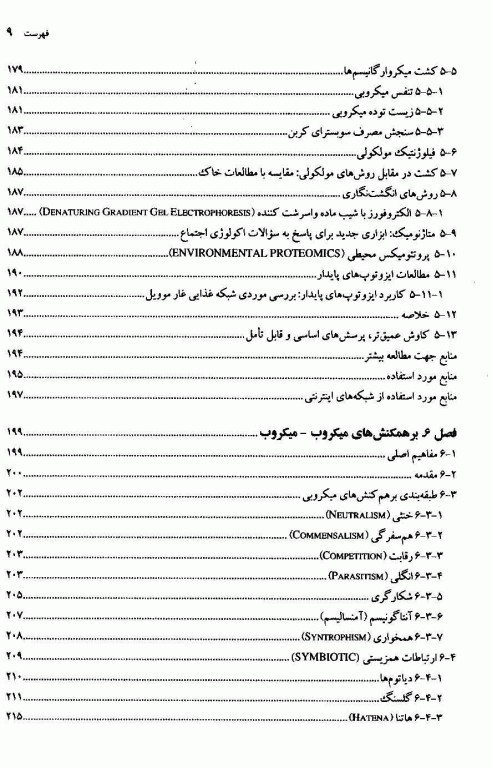 فهرست ۹
۵-۵ کشت میکروارگانیسم‌ها ۱۷۹
۵-۵-۱ تنفس میکروبی ۱۸۱
۵-۵-۲ زیست توده میکروبی ۱۸۱
۵-۵-۳ سنجش مصرف سوبسترای کربن ۱۸۳
۵-۶ فیلوژنتیک مولکولی ۱۸۴
۵-۷ کشت در مقابل روش‌های مولکولی: مقایسه با مطالعات خاک ۱۸۵
۵-۸ روش‌های انگشت‌نگاری ۱۸۷
۵-۸-۱ الکتروفورز با شیب ماده واسرشت کننده (DENATURING GRADIENT GEL ELECTROPHORESIS) ۱۸۷
۵-۹ متاژنومیک: ابزاری جدید برای پاسخ به سؤالات اکولوژی اجتماع ۱۸۷
۵-۱۰ پروتئومیکس محیطی (ENVIRONMENTAL PROTEOMICS) ۱۸۸
۵-۱۱ مطالعات ایزوتوپ‌های پایدار ۱۹۰
۵-۱۱-۱ کاربرد ایزوتوپ‌های پایدار: بررسی موردی شبکه غذایی غار موویل ۱۹۲
۵-۱۲ خلاصه ۱۹۳
۵-۱۳ کاوش عمیق‌تر، پرسش‌های اساسی و قابل تأمل ۱۹۴
منابع جهت مطالعه بیشتر ۱۹۴
منابع مورد استفاده ۱۹۵
منابع مورد استفاده از شبکه‌های اینترنتی ۱۹۷
فصل ۶. برهمکنش‌های میکروب - میکروب ۱۹۹
۶-۱ مفاهیم اصلی ۱۹۹
۶-۲ مقدمه ۲۰۰
۶-۳ طبقه‌بندی برهم‌کنش‌های میکروبی ۲۰۲
۶-۳-۱ خنثی (NEUTRALISM) ۲۰۲
۶-۳-۲ هم‌سفرگی (COMMENSALISM) ۲۰۲
۶-۳-۳ رقابت (COMPETITION) ۲۰۳
۶-۳-۴ انگلی (PARASITISM) ۲۰۳
۶-۳-۵ شکارگری ۲۰۵
۶-۳-۶ آنتاگونیسم (آمنسالیسم) ۲۰۷
۶-۳-۷ همخواری (SYNTROPHISM) ۲۰۸
۶-۴ ارتباطات همزیستی (SYMBIOTIC) ۲۰۹
۶-۴-۱ دیاتوم‌ها ۲۱۰
۶-۴-۲ گلسنگ ۲۱۱
۶-۴-۳ هاتنا (HATENA) ۲۱۵